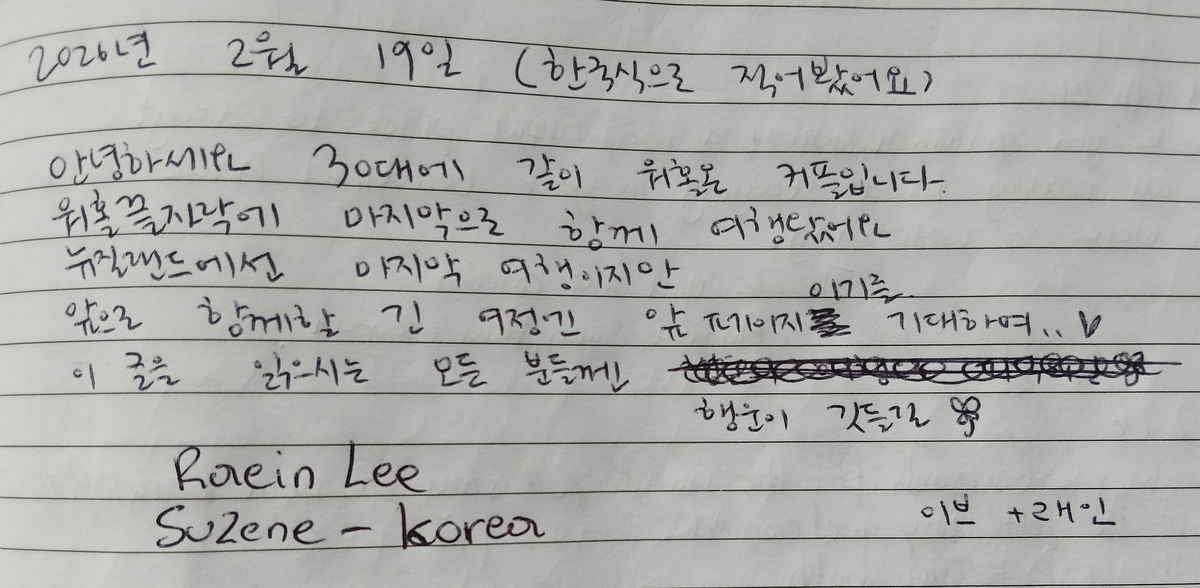 2026년 2월 19일 (한국식으로 적어봤어요)
안녕하세요 30대에 같이 워홀온 커플입니다.
워홀 끝자락에 마지막으로 함께 여행왔어요
뉴질랜드에선 마지막 여행이지만
이기를
앞으로 함께할 긴 여정긴 앞 페이지 기대하며..♡
이 글을 읽으시는 모든 분들껜
행운이 깃들길
Raein Lee
Suzene - Korea
이브 + 래인